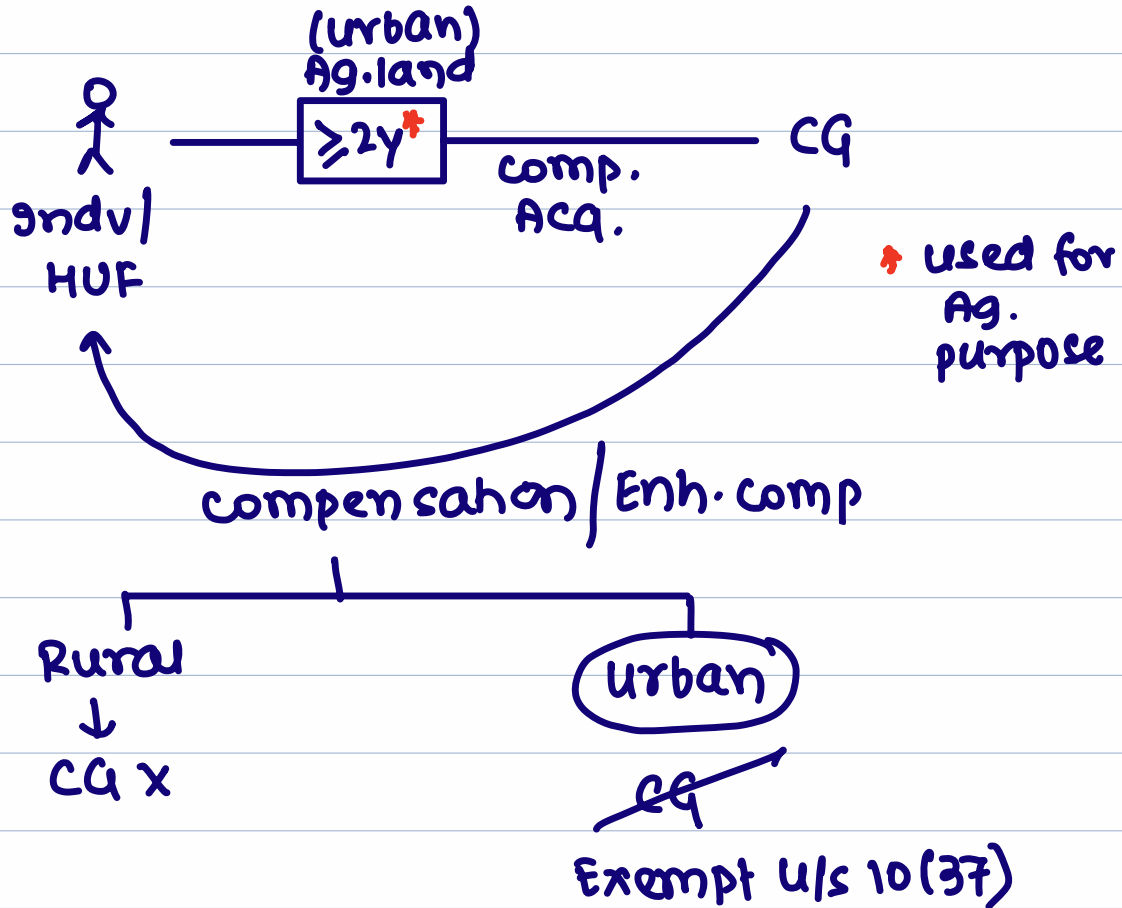 (urban)
Ag.land
≥2y*
CG
comp.
Acq.
Indv/
HUF
* used for
Ag.
purpose
compensation / Enh. comp
Rural
urban
↓
CG x
CG
Exempt u/s 10(37)